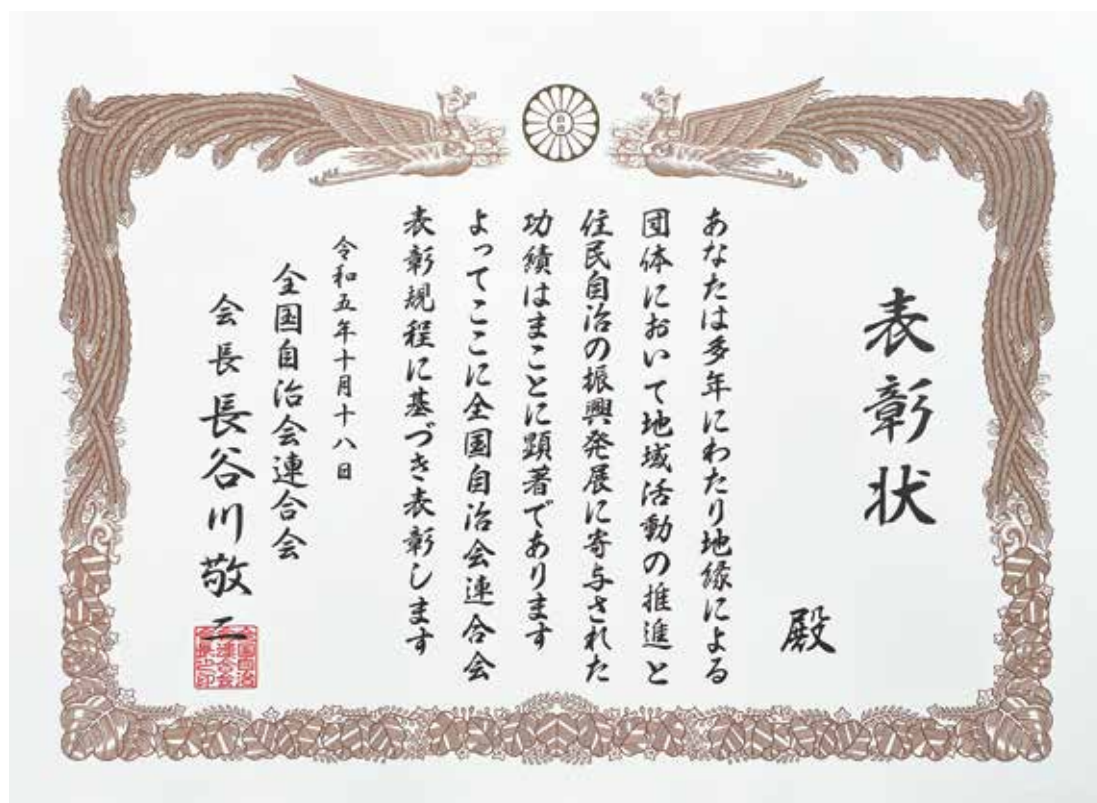 表彰状
殿
あなたは多年にわたり地縁による
団体において地域活動の推進と
住民自治の振興発展に寄与された
功績はまことに顕著であります
よってここに全国自治会連合会
表彰規程に基づき表彰します
令和五年十月十八日
全国自治会連合会
会長長谷川敬二
全国自治
会連合会
会長之印